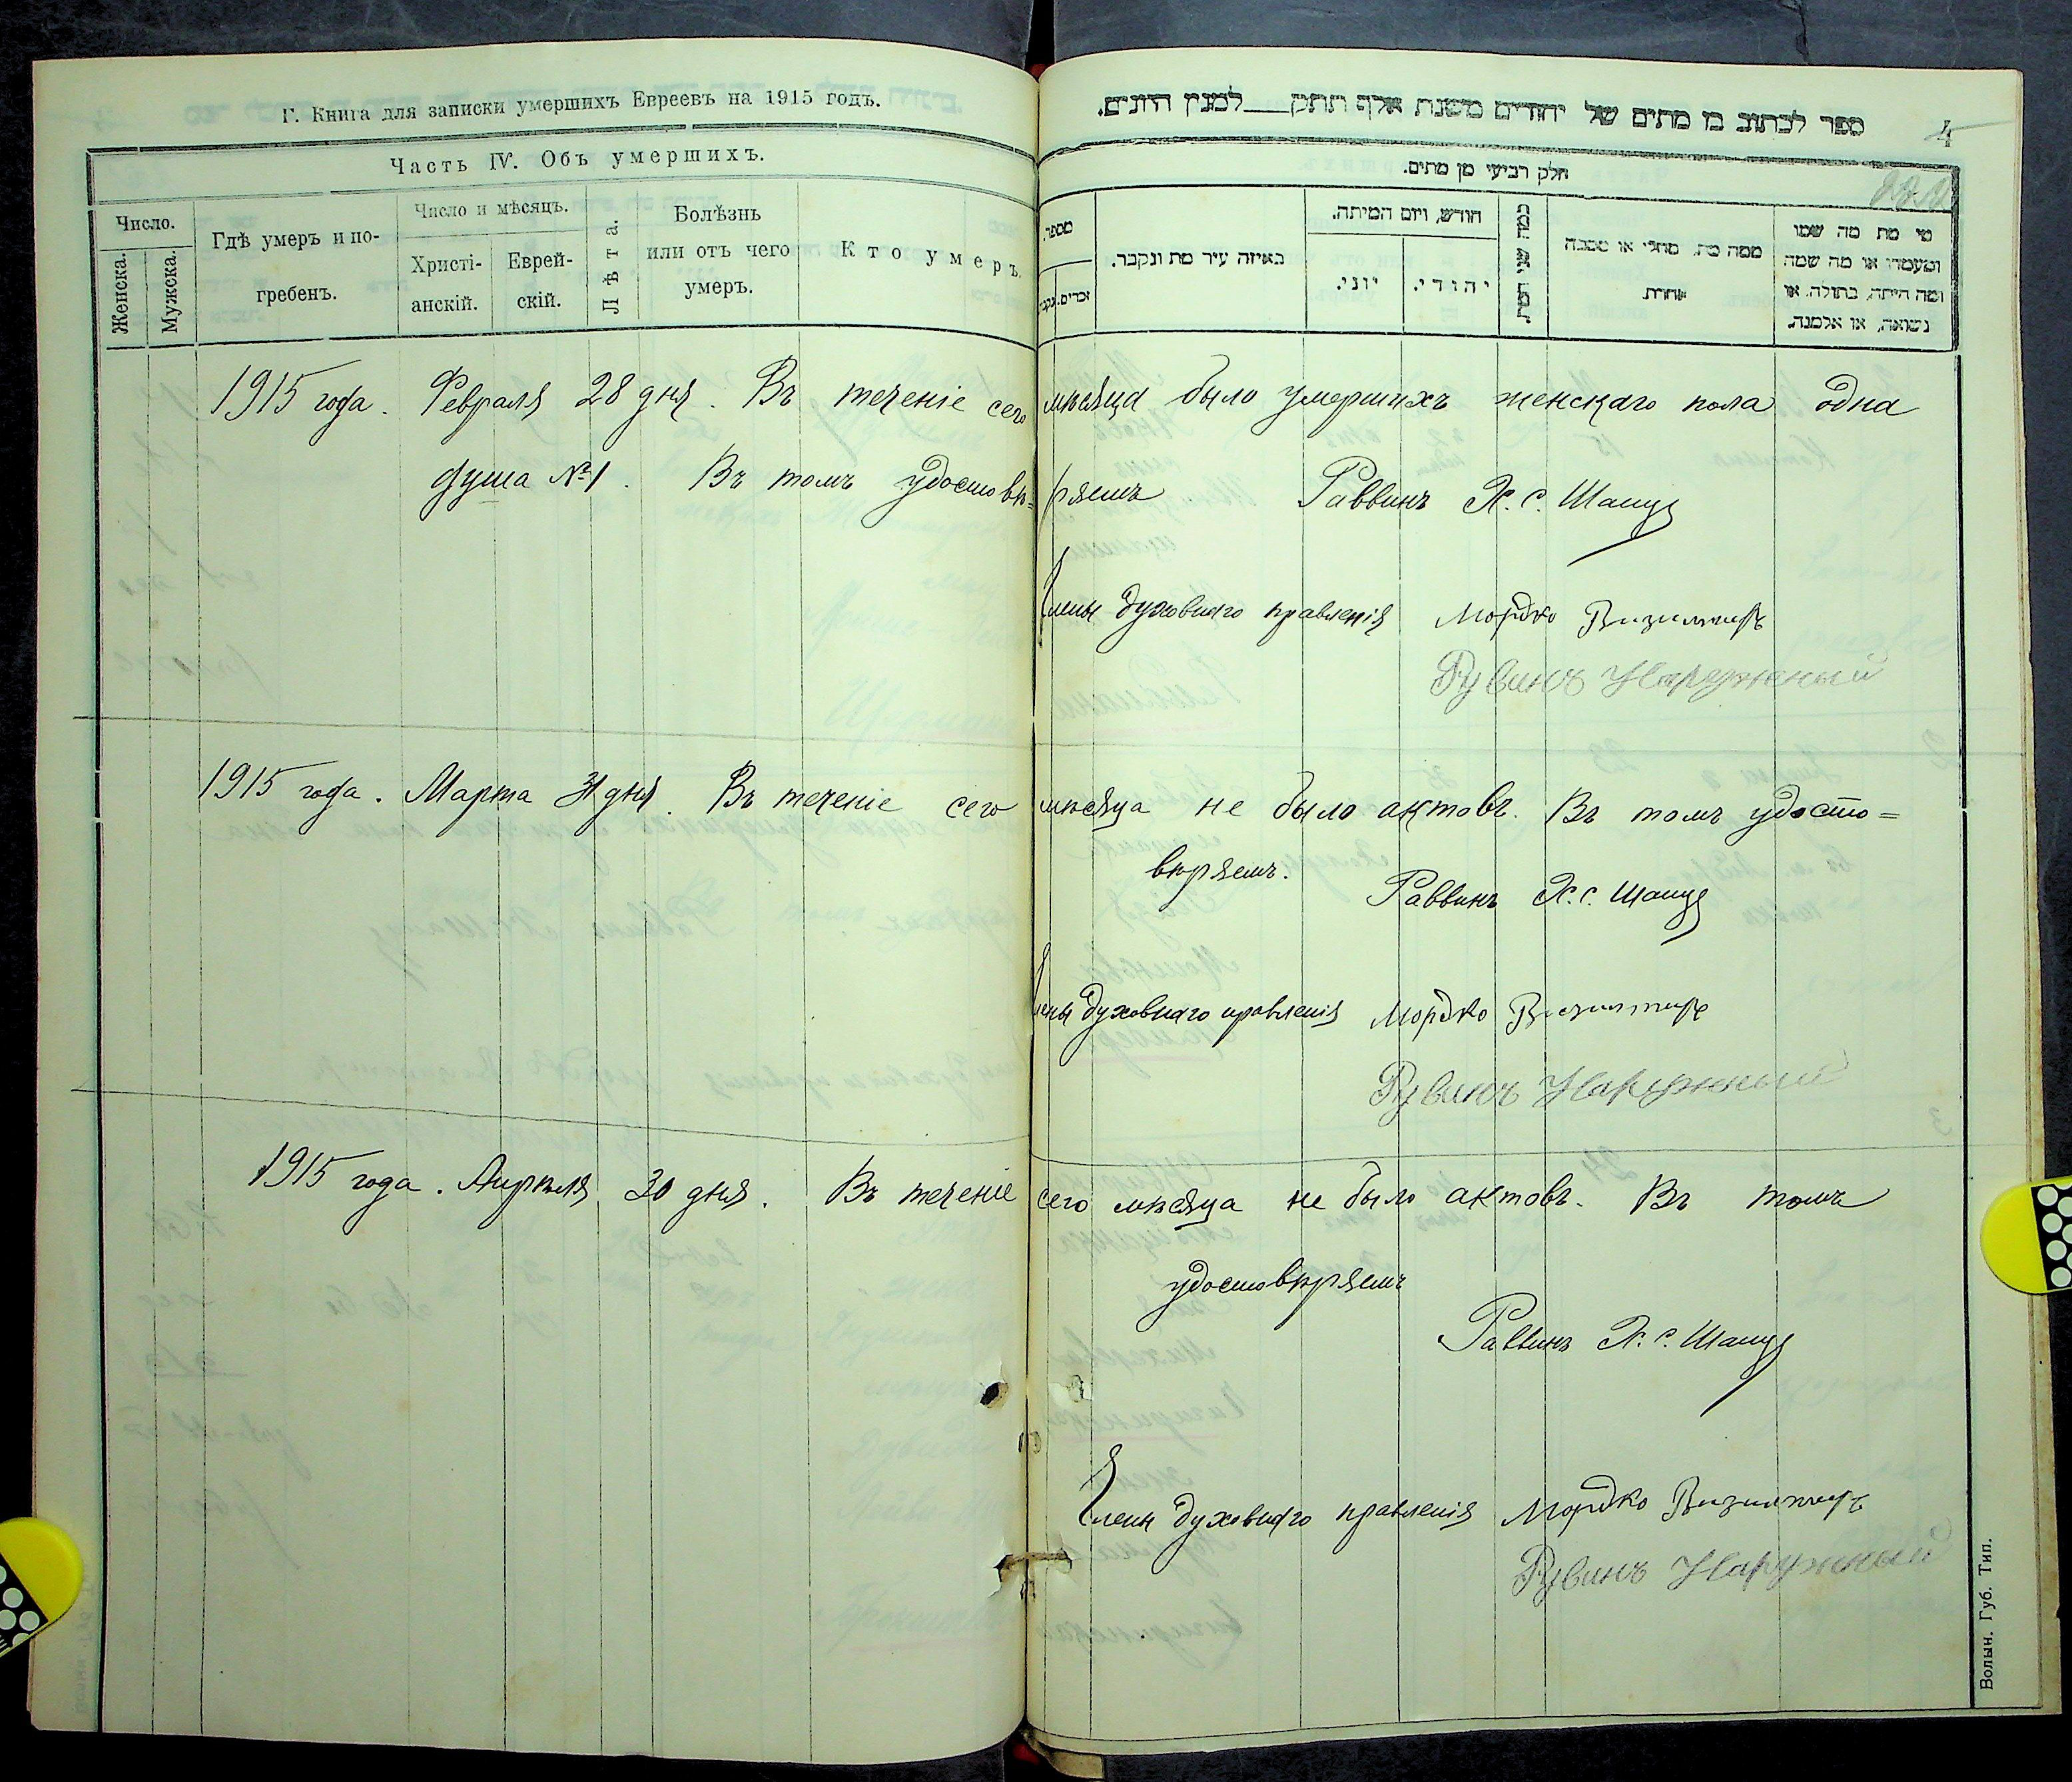 Г. Книга для записки умершихъ Евреевъ на 1915 годъ.
Часть IV. Объ умершихъ.
Число.
Женска.
Мужска.
Гдѣ умеръ и по-
гребенъ.
Число и мѣсяцъ.
Христі-
анскій.
Еврей-
скій.
Лѣта.
Болѣзнь
или отъ чего
умеръ.
Кто умеръ.
ספר לכתוב בו מתים של יהודים משנת אלף תתק למנין היונים.
4
חלק רביעי מן מתים.
מספר.
זכרים.
נקבות
באיזה עיר מת ונקבר.
חודש, ויום המיתה.
יוני.
יהודי.
כמה שני המת
ממה מת, מחלי או מסבה
אחרת
מי מת מה שמו
ומעמדו או מה שמה
ומה היתה, בתולה, או
נשואה, או אלמנה.
1915 года. Февраля 28 дня. Въ теченіе сего мѣсяца было умершихъ женскаго пола одна
душа №1. Въ томъ удостовѣ=ряемъ Раввинъ Х. С. Шапиро
Члены духовнаго правленія Мордко
Рувинъ Наружный
1915 года. Марта 31 дня. Въ теченіе сего мѣсяца не было актовъ. Въ томъ удосто=
вѣряемъ. Раввинъ Х. С. Шапиро
Члены духовнаго правленія Мордко
Рувинъ Наружный
1915 года. Апрѣля 30 дня. Въ теченіе сего мѣсяца не было актовъ. Въ томъ
удостовѣряемъ
Раввинъ Х. С. Шапиро
Члены духовнаго правленія Мордко
Рувинъ Наружный
Волын. Губ. Тип.